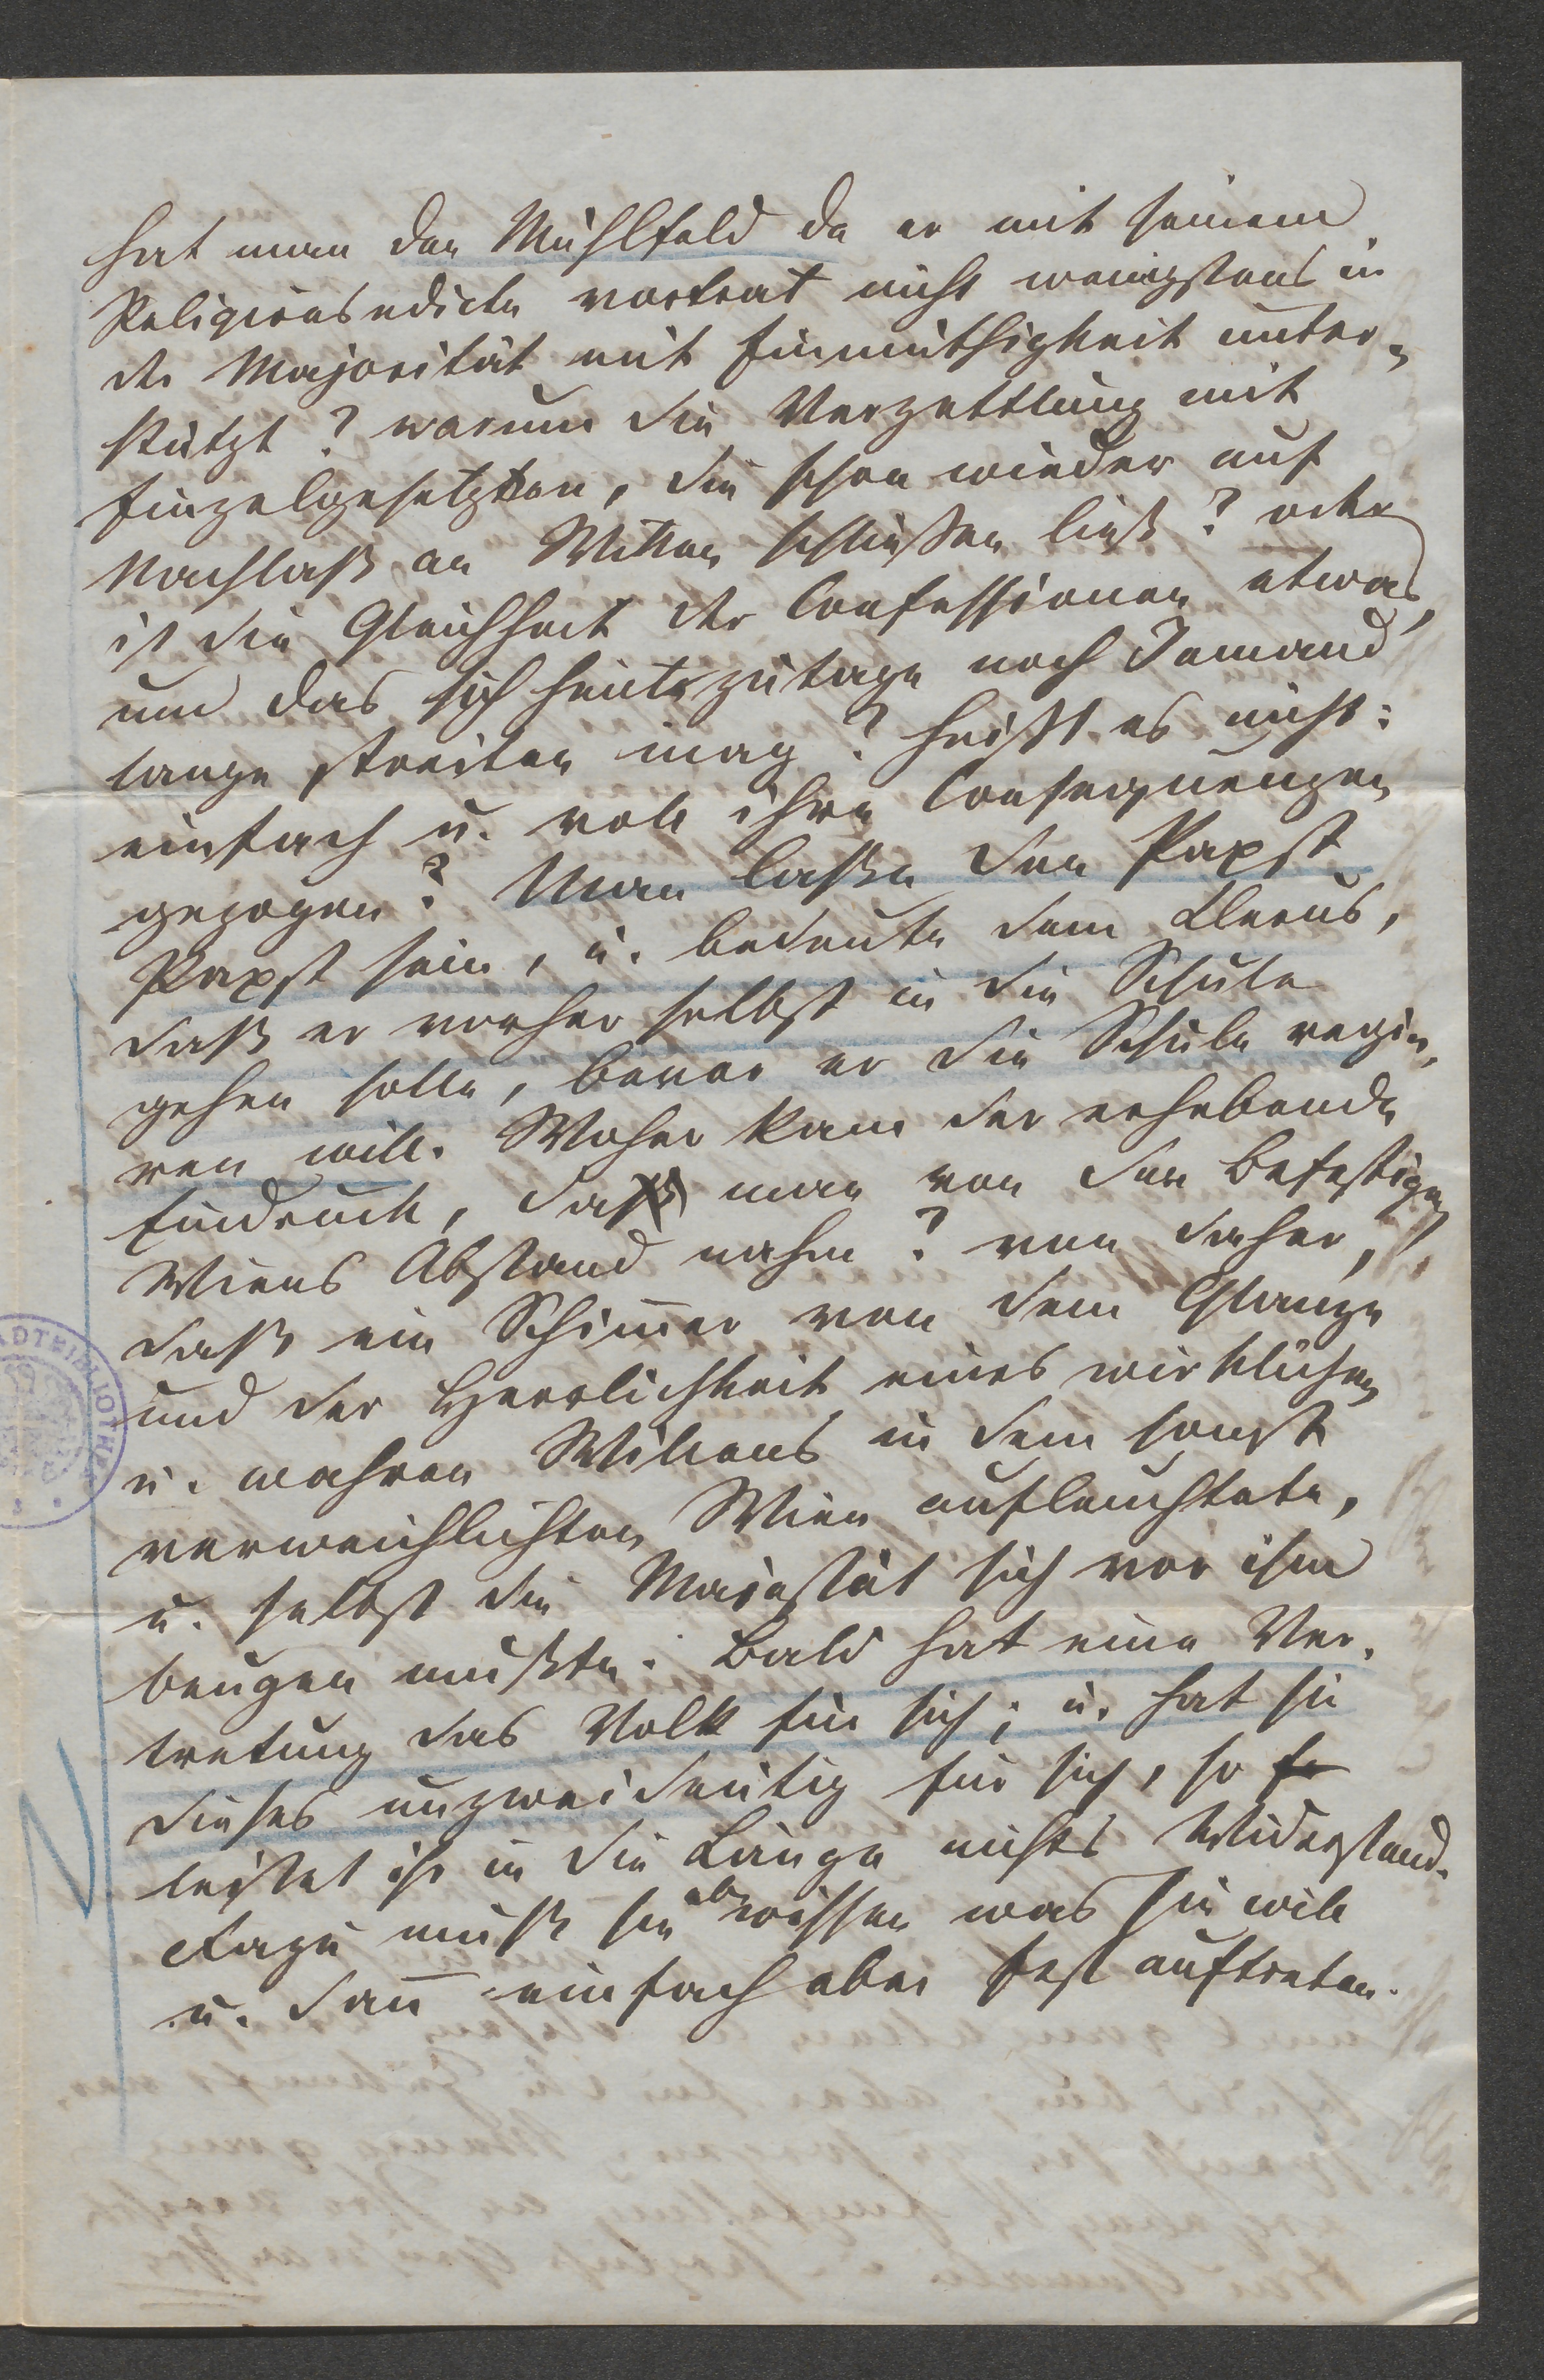 hat man den Mühlfeld da er mit seinem
Religionsedicte vortrat nicht wenigstens in
der Majorität mit Einmüthigkeit unter-
stützt? warum die Verzettlung mit
Einzelgesetzen, die schon wieder auf
Nachlaß an Willen schließen ließ? oder
ist die Gleichheit der Confessionen etwas,
um das sich heutzutage noch Jemand
lange streiten mag? heißt es nicht:
einfach u. voll ihre Consequenzen
gezogen? Man laße den Papst
Papst sein, u. bedeute dem Klerus,
daß er vorher selbst in die Schule
gehen solle, bevor er die Schule regie-
ren will. Woher kam der erhebende
Eindruck, daß man von der Befestigung
Wiens Abstand nahm? von daher,
daß ein Schimmer von dem Glanze
und der Herrlichkeit eines wirklichen
u. wahren Willens in dem sonst
verweichlichten Wien aufleuchtete,
u. selbst die Majestät sich vor ihm
beugen mußte. Bald hat eine Ver-
tretung das Volk für sich; u. hat sie
dieses unzweideutig für sich, so
leistet ihr in die Länge nichts Widerstand.
Dazu muß sie aber wissen was sie will
u. dan̄ einfach aber fest auftreten.